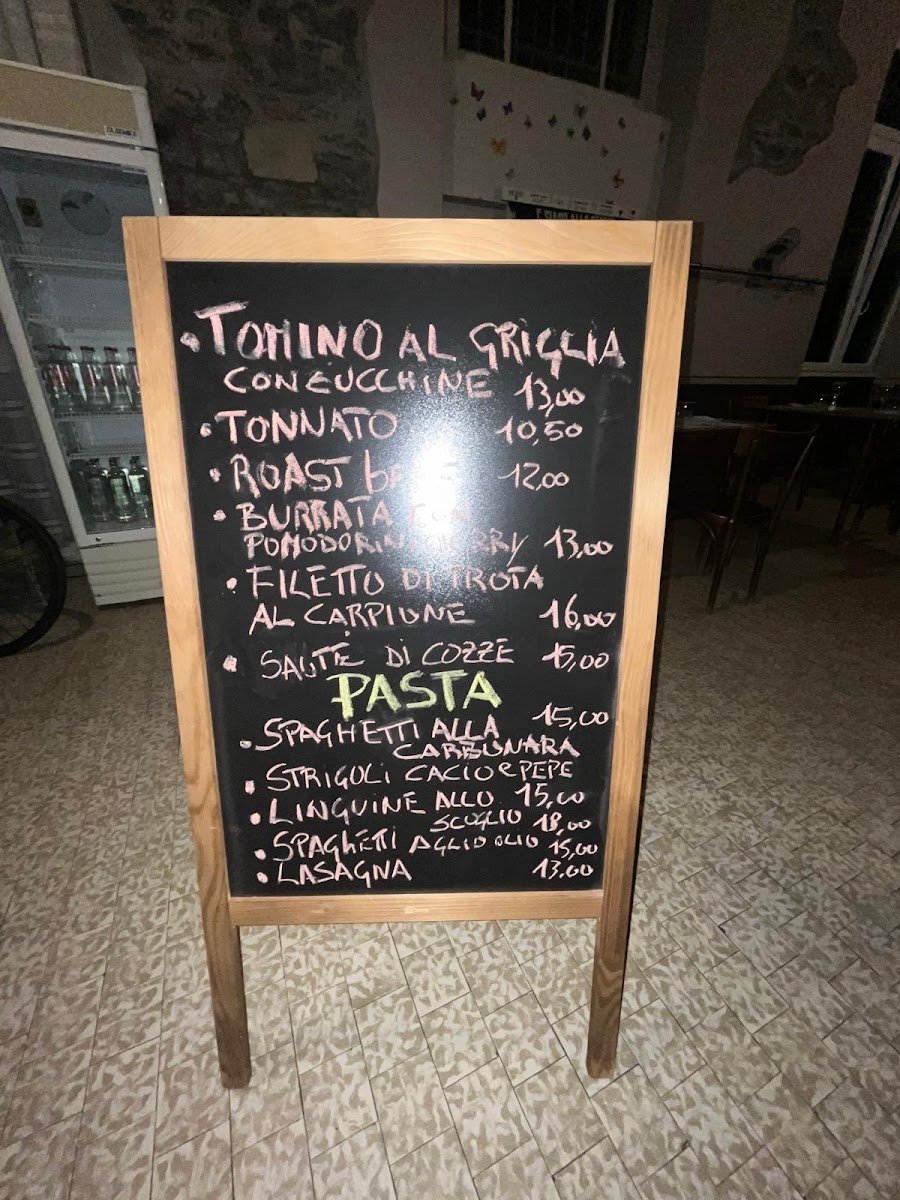 • TOMINO AL GRIGLIA
CON ZUCCHINE 13,00
• TONNATO 10,50
• ROAST 12,00
• BURRATA
POMODORIN 13,00
• FILETTO DI TROTA
AL CARPIONE 16,00
• SAUTE DI COZZE 15,00
PASTA
• SPAGHETTI ALLA 15,00
CARBONARA
• STRIGOLI CACIO e PEPE
• LINGUINE ALLO 15,00
SCOGLIO 18,00
• SPAGHETTI AGLIO OLIO 15,00
• LASAGNA 13.00